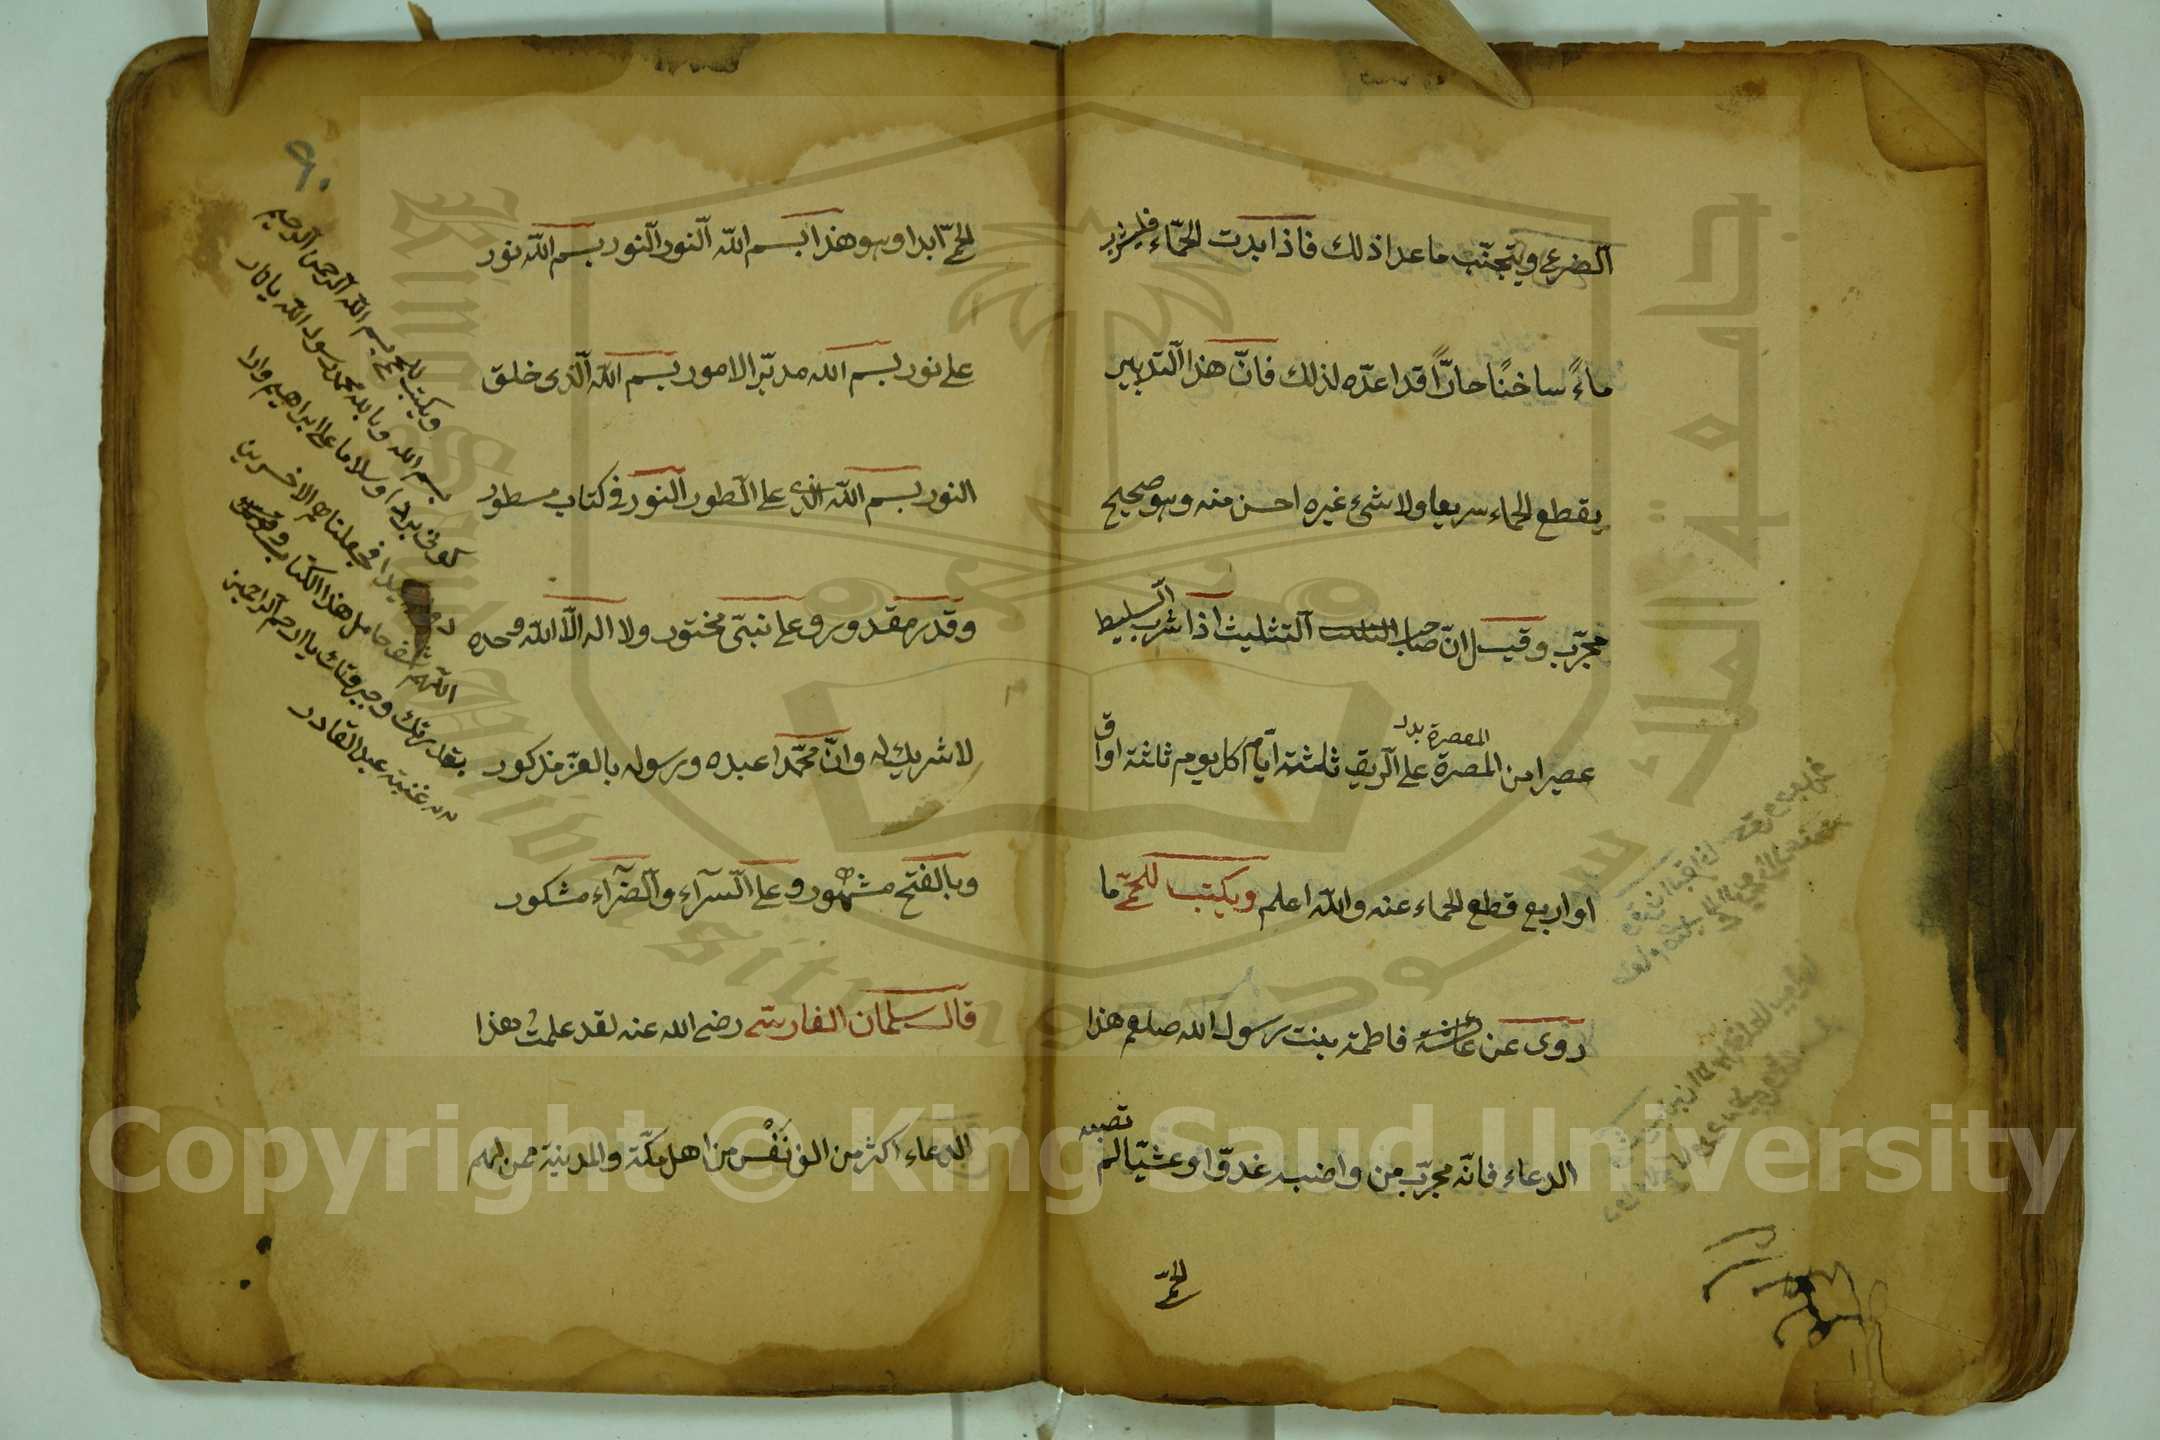 الضرعى ويتجنّب ما عدا ذلك فاذا بدت الحمّاء فليشرب
ماءً ساخنًا حارًّا قد اعدّه لذلك فانّ هذا التدبير
يقطع الحماء سريعا ولا شئ غيره احسن منه وهو صحيح
مجرّب وقيل انّ صاحب التثليث اذا شرب السليط
المعصرة بدل
عصيرا من المصرة على الريق ثلثة ايّام كل يوم ثلثة اواق
او اربع قطع الحماء عنه والله اعلم ويكتب للحمّى ما
روى عن عائشة فاطمة بنت رسول الله صلعم هذا
الدعاء فانّه مجرّب من واضبه غدوّا وعشيّا لم تصبه
الحمّى
٩٠
الحمّى ابدا وهو هذا بسم الله النور النور بسم الله نور
على نور بسم الله مدبّر الامور بسم الله الّذى خلق
النور بسم الله الذى على الطور النور فى كتاب مسطور
وقدر مقدور وعلى نبىّ مختور ولا اله الّا الله وحده
لا شريك له وانّ محمّدا عبده ورسوله بالعزّ مذكور
وبالفتح مشهور وعلى السرآء والضرّآء مشكور
قال سلمان الفارسى رضى الله عنه لقد علمت هذا
الدعاء اكثر من الف نَفْس من اهل مكّة والمدينة ممن بهم
ويكتب للحمى بسم الله الرحمن الرحيم
بسم الله وبالله محمد رسول الله يا نار
كونى بردا وسلاما على ابراهيم وارادوا
به كيدا فجعلناهم الاخسرين
اللهم اشف حامل هذا الكتاب
بقدرتك وجبروتك يا ارحم الراحمين
عبد القادر
Copyright © King Saud University
جامعة الملك سعود
King Saud University